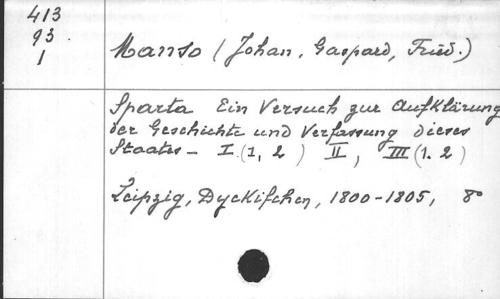 413
93
1
Manso (Johan, Gaspard, Fried.)
Sparta Ein Versuch zur Aufklärung
der Geschichte und Verfassung dieses
Staates - I (1, 2) II, III (1. 2)
Leipzig, Dyckifchen, 1800-1805, 8°